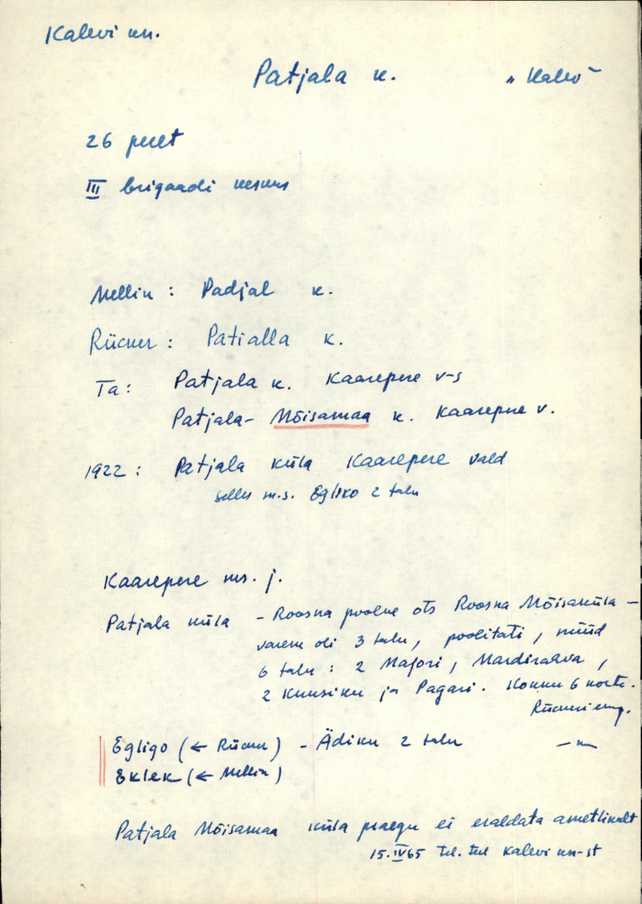 Kalevi kn.
Patjala k. "Kalev"
26 peret
III brigaadi keskus
Mellin : Padjal k.
Rücker : Patialla k.
Ta : Patjala k. Kaarepere v-s
Patjala- Mõisamaa k. Kaarepere v.
1922 : Patjala küla Kaarepere vald
Selles m.s. Egliko 2 talu
Kaarepere ms. j.
Patjala küla - Roosna poolne ots Roosna Mõisaküla -
varem oli 3 talu, poolitati, nüüd
6 talu : 2 Majori, Mardiraava,
2 Kuusiku ja Pagari. Kokku 6 koht.
Rückeri
Egligo (← Rücker) - Ädiku 2 talu — " —
Eklek (← Mellin)
Patjala Mõisamaa küla praegu ei eraldata ametlikult
15.IV65 tel. teel Kalevi kn-st